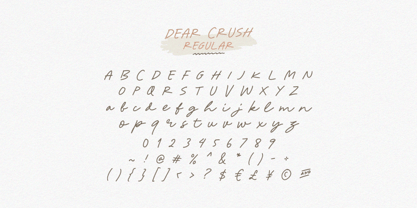 DEAR CRUSH
REGULAR
A B C D E F G H I J K L M N
O P Q R S T U V W X Y Z
a b c d e f g h i j k l m n
o p q r s t u v w x y z
0 1 2 3 4 5 6 7 8 9
~ ! @ # % ^ & * ( ) - +
( ) { } [ ] < > ? $ € £ ¥ ©